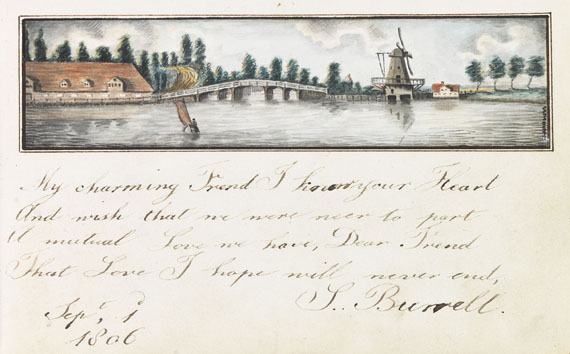 My charming Frend I know your Heart
And wish that we were neer to part
A mutual Love we have, Dear Frend
That Love I hope will never end,
S. Burrell.
Sepr. 1
1806